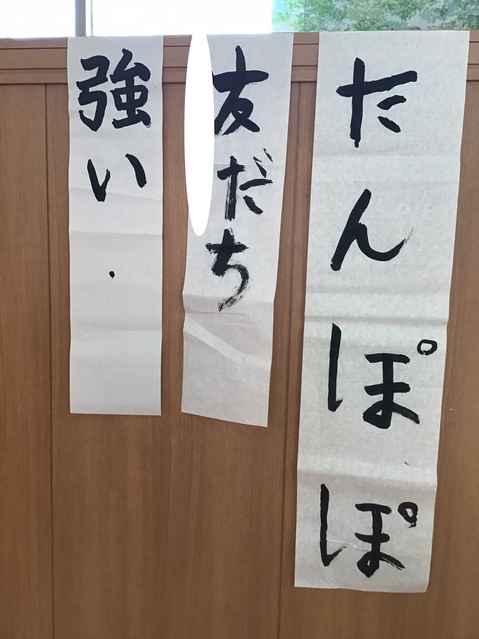 たんぽぽ
友だち
強い